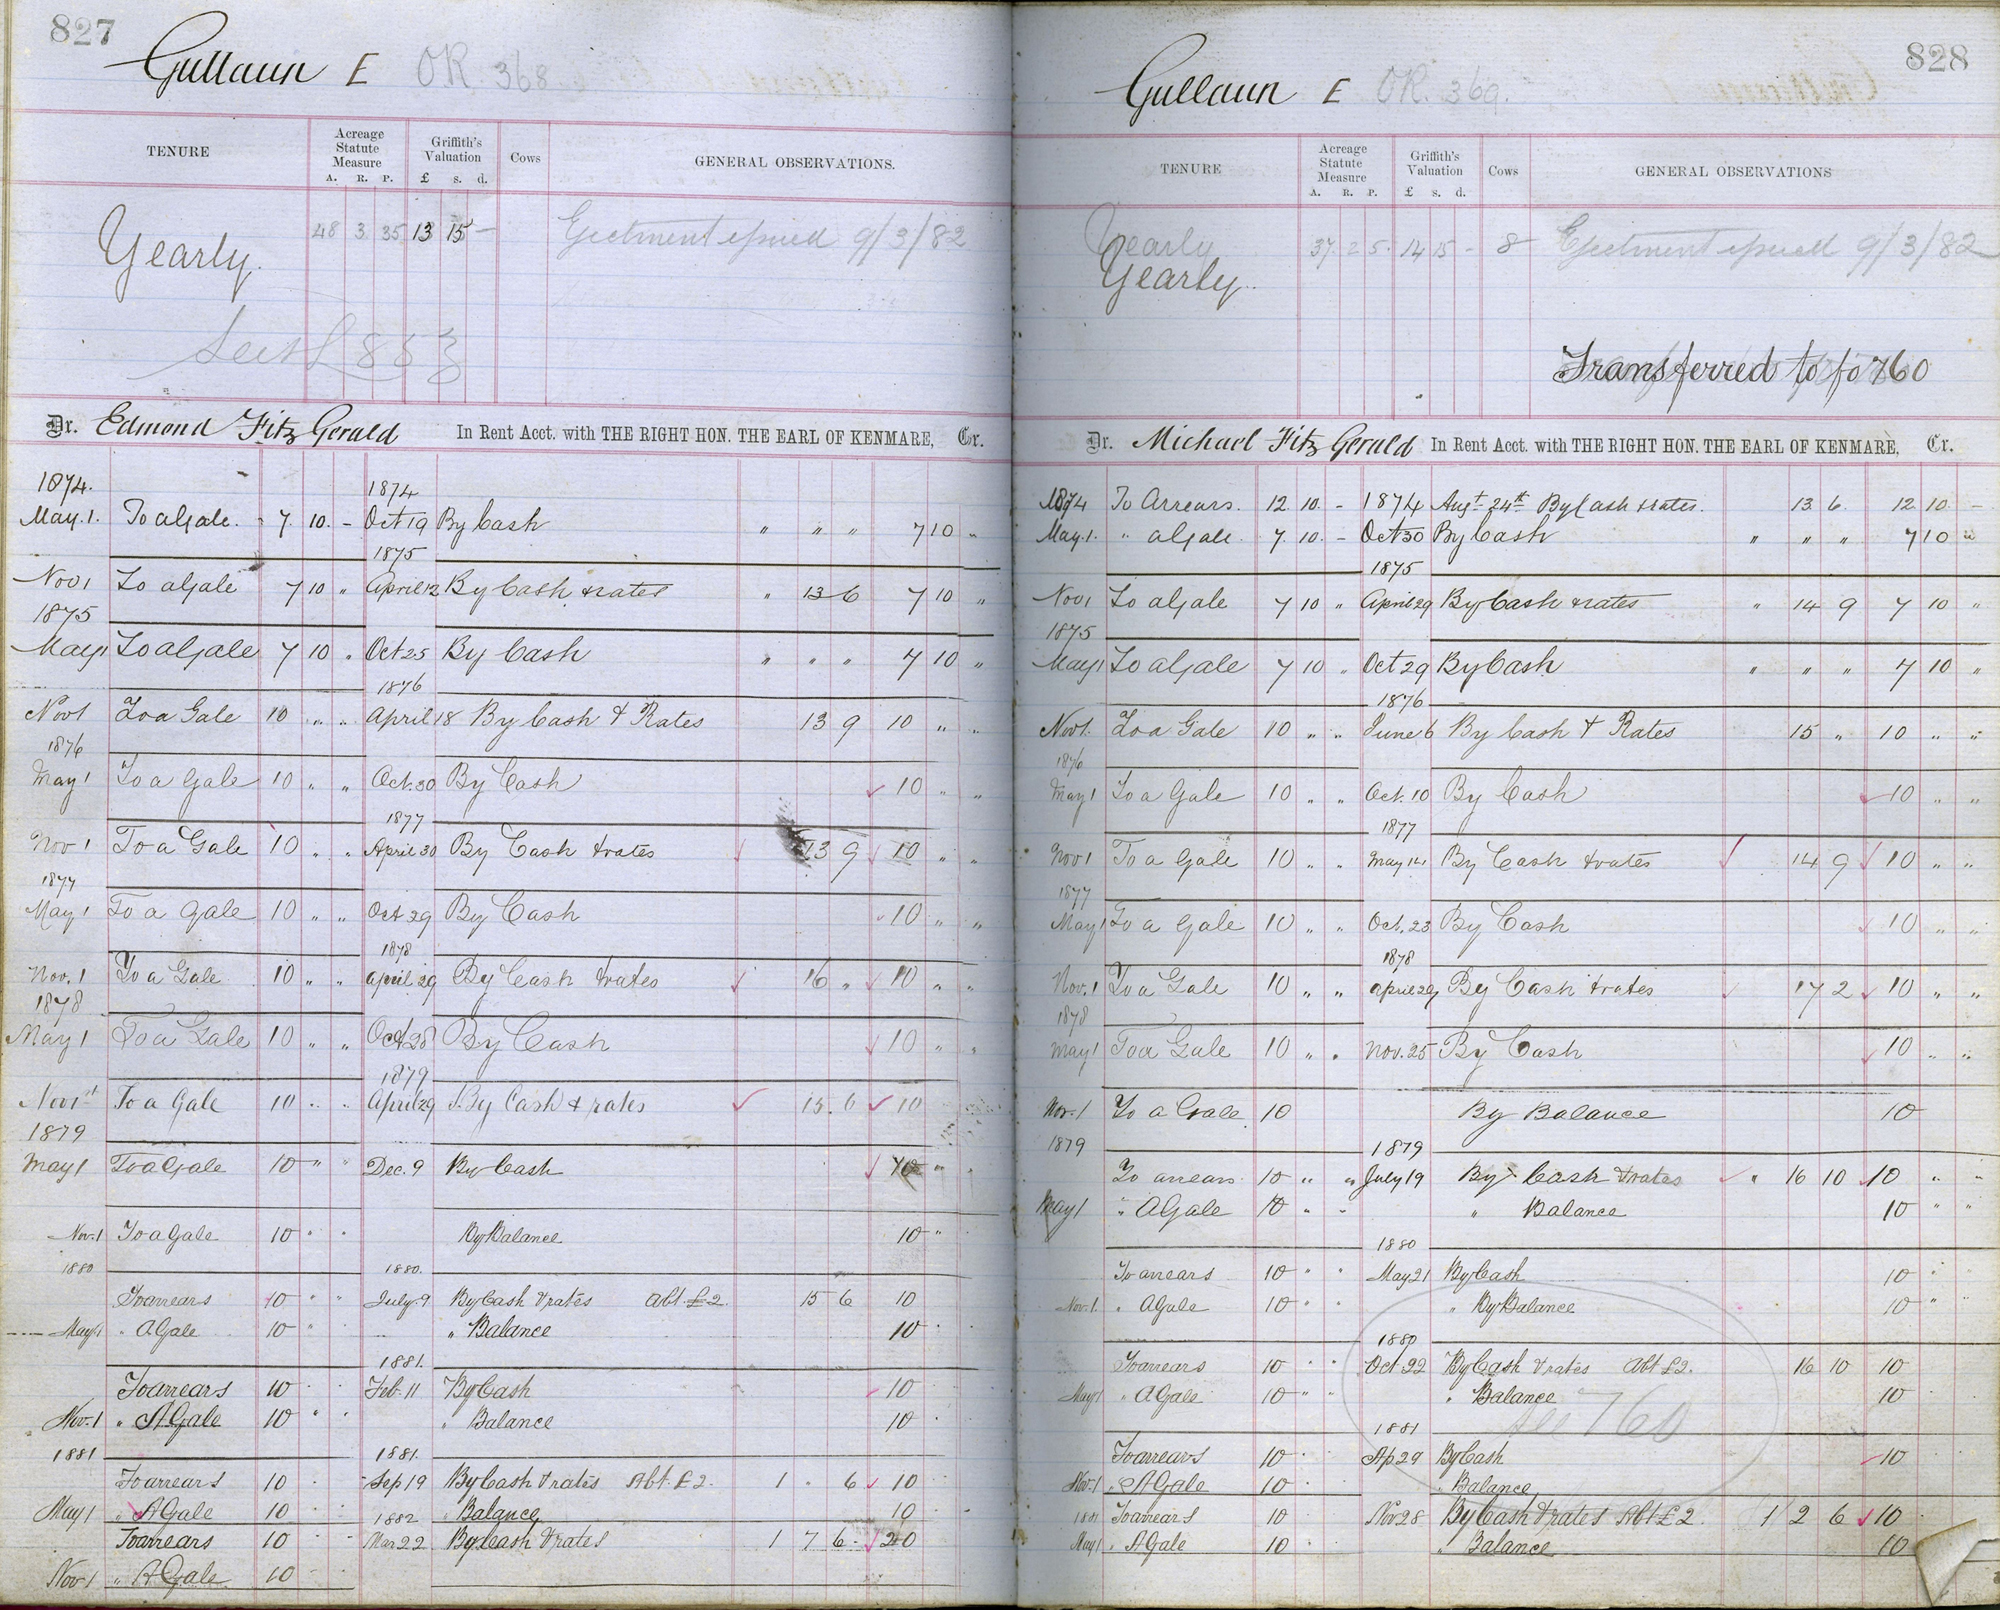 827
Gullaun E OR. 368
TENURE
Acreage Statute Measure
A. R. P.
Griffith's Valuation
£ s. d.
Cows
GENERAL OBSERVATIONS.
Yearly. 48 3 35 13 15 – Ejectment issued 9/3/82
Dr. Edmond Fitz Gerald In Rent Acct. with THE RIGHT HON. THE EARL OF KENMARE, Cr.
1874. 1874
May. 1. To a Gale. 7. 10. – Oct 19 By Cash " " " 7 10 "
1875
Nov 1 To a Gale 7 10 " April 12 By Cash & rates " 13 6 7 10 "
1875
May 1 To a Gale 7 10 " Oct 25 By Cash " " " 7 10 "
1876
Nov 1 To a Gale 10 " " April 18 By Cash & Rates 13 9 10 " "
1876
May 1 To a Gale 10 " " Oct. 30 By Cash 10 " "
1877
Nov 1 To a Gale 10 " " April 30 By Cash & rates 13 9 10 " "
1877
May 1 To a Gale 10 " " Oct 29 By Cash 10 " "
1878
Nov. 1 To a Gale 10 " " April 29 By Cash & rates 16 " 10 " "
1878
May 1 To a Gale 10 " " Oct 28 By Cash 10 " "
1879
Nov 1st To a Gale 10 " " April 29 By Cash & rates 15. 6 10
1879
May 1 To a Gale 10 " " Dec. 9 By Cash 10 " "
Nov. 1 To a Gale 10 " " By Balance 10 "
1880 1880.
To arrears 10 " " July. 9 By Cash & rates Abt. £2. 15 6 10
May 1 " A Gale 10 " " Balance 10
1881.
To arrears 10 Feb. 11 By Cash 10
Nov. 1 " A Gale 10 " " Balance 10
1881 1881.
To arrears 10 Sep 19 By Cash & rates Abt. £2. 1 . 6 10
May 1 " A Gale 10 " Balance 10
1882
To arrears 10 Mar 22 By Cash & rates 1 7 6 20
Nov. 1 " A Gale 10
828
Gullaun E OR. 369.
TENURE
Acreage Statute Measure
A. R. P.
Griffith's Valuation
£ s. d.
Cows
GENERAL OBSERVATIONS
Yearly 37. 2 5. 14 15 – 8 Ejectment issued 9/3/82
Yearly.
Transferred to fo 760
Dr. Michael Fitz Gerald In Rent Acct. with THE RIGHT HON. THE EARL OF KENMARE, Cr.
1874 To Arrears. 12. 10. – 1874 Augt 24th By Cash & rates. 13. 6. 12 10. –
May. 1. " a Gale. 7. 10. – Oct 30 By Cash " " " 7 10 "
1875
Nov 1 To a Gale 7 10 " April 29 By Cash & rates " 14 9 7 10 "
1875
May 1 To a Gale 7 10 " Oct 29 By Cash " " " 7 10 "
1876
Nov 1. To a Gale 10 " " June 6 By Cash & Rates 15 " 10 " "
1876
May 1 To a Gale 10 " " Oct. 10 By Cash 10 " "
1877
Nov 1 To a Gale 10 " " May 14 By Cash & rates 14 9 10 " "
1877
May 1 To a Gale 10 " " Oct. 23 By Cash 10 " "
1878
Nov. 1 To a Gale 10 " " April 29 By Cash & rates 17 2 10 " "
1878
May 1 To a Gale 10 " " Nov. 25 By Cash 10 " "
Nov. 1 To a Gale 10 By Balance 10
1879 1879
To arrears 10 " " July 19 By Cash & rates " 16 10 10 " "
May 1 " A Gale 10 " " " Balance 10 " "
1880
To arrears 10 " " May 21 By Cash 10 "
Nov. 1. " A Gale 10 " " " By Balance 10 "
1880
To arrears 10 " " Oct 22 By Cash & rates Abt £2. 16 10 10
May 1 " A Gale 10 " " " Balance 10
see 760
1881
To arrears 10 Ap 29 By Cash 10
Nov. 1 " A Gale 10 " Balance
1881 To arrears 10 Nov 28 By Cash & rates Abt £2. 1 2 6 10
May 1 " A Gale 10 " Balance 10